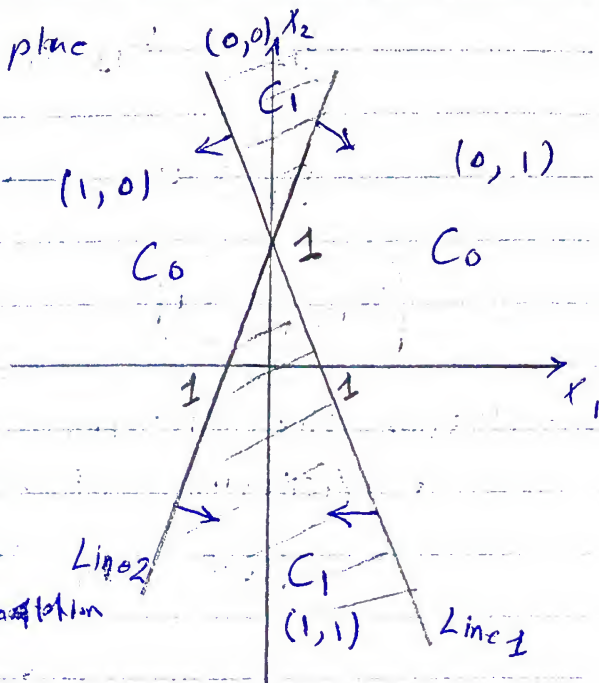 plane
(0,0) X2
C1
(1,0)
(0,1)
C0
1
C0
1
1
X1
Line2
C1
(1,1)
Line 1